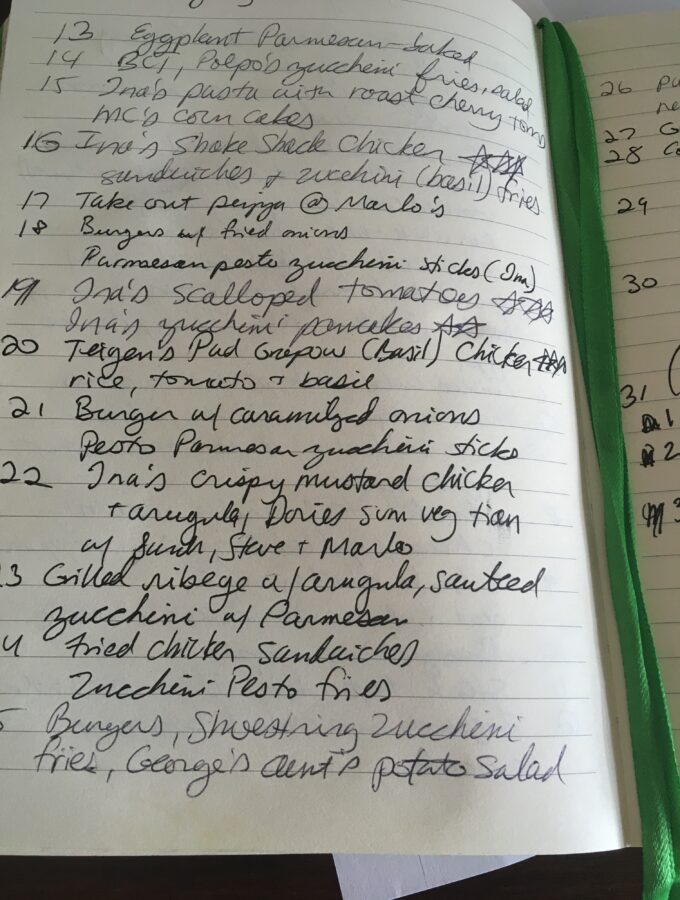 13 Eggplant Parmesan-baked
14 BCT, Polpo's zucchini fries, salad
15 Ina's pasta with roast cherry toms
MC's corn cakes
16 Ina's Shake Shack Chicken ☆☆☆
sandwiches + zucchini (basil) fries
17 Take out @ Marlo's
18 Burgers w/ fried onions
Parmesan pesto zucchini sticks (Ina)
19 Ina's scalloped tomatoes ☆☆☆
Ina's zucchini pancakes ☆☆
20 Teigen's Pad Grapow (Basil) Chicken ☆☆☆
rice, tomato + basil
21 Burger w/ caramilzed onions
Pesto Parmesan zucchini sticks
22 Ina's crispy mustard chicken
+ arugula, Dories sum veg tian
w/ Sarah, Steve + Marlo
3 Grilled ribeye w/ arugula, sauteed
zucchini w/ Parmesan
4 fried chicken sandwiches
Zucchini Pesto fries
5 Burgers, Shoestring Zucchini
fries, George's aunt's potato salad
26
27 G
28 Co
29
30
31 (
1
2
3